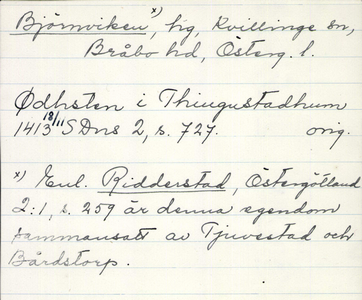 Björnviken x), hg, Kvillinge sn,
Bråbo hd, Österg. l.
Ødhsten i Thingustadhum
1413 18/11 SDns 2, s. 727. orig.
x) Enl. Ridderstad, Östergötland
2:1, s. 259 är denna egendom
sammansatt av Tjuvestad och
Bårdstorp.